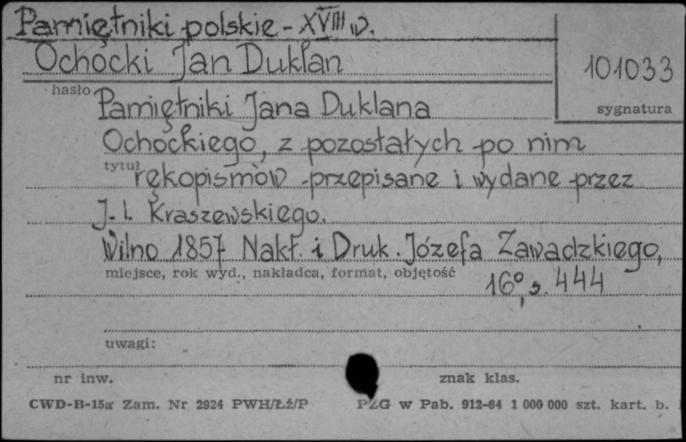 Pamiętniki polskie - XVIII w.
Ochocki Jan Duklan
101033
hasło
sygnatura
Pamiętniki Jana Duklana
Ochockiego, z pozostałych po nim
tytuł
rękopismów przepisane i wydane przez
J. I. Kraszewskiego.
Wilno 1857 Nakł. i Druk. Józefa Zawadzkiego,
miejsce, rok wyd., nakładca, format, objętość
16°, s. 444
uwagi:
nr inw.
znak klas.
CWD-B-15a Zam. Nr 2924 PWH/Łź/P
PZG w Pab. 912-64 1 000 000 szt. kart. b.